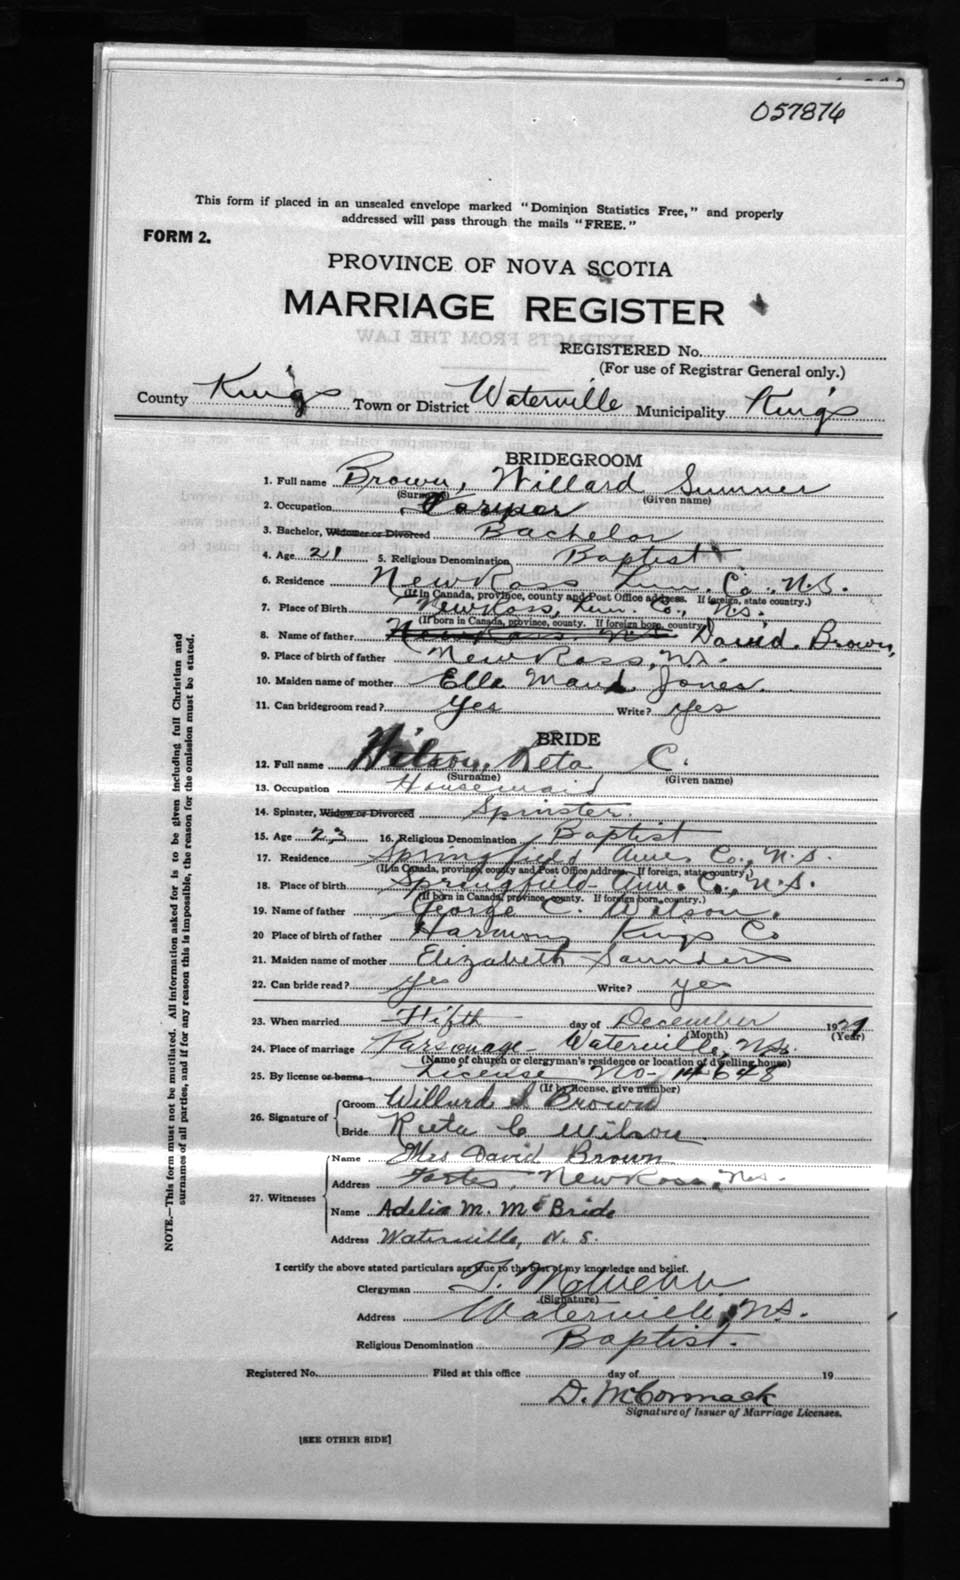 057876
This form if placed in an unsealed envelope marked "Dominion Statistics Free," and properly
addressed will pass through the mails "FREE."
FORM 2.
PROVINCE OF NOVA SCOTIA
MARRIAGE REGISTER
REGISTERED No.
(For use of Registrar General only.)
County Kings Town or District Waterville Municipality King's
BRIDEGROOM
1. Full name Brown, Willard Sumner
(Surname) (Given name)
2. Occupation
3. Bachelor, Widower or Divorced Bachelor
4. Age 21 5. Religious Denomination Baptist
6. Residence New Ross Lun. Co. N.S.
(If in Canada, province, county and Post Office address. If foreign, state country.)
7. Place of Birth New Ross, Lun. Co., N.S.
(If born in Canada, province, county. If foreign born, country)
8. Name of father New Ross N.S. David Brown,
9. Place of birth of father New Ross, N.S.
10. Maiden name of mother Ella Maud Jones.
11. Can bridegroom read? Yes Write? yes
BRIDE
12. Full name Wilson, Reta C.
(Surname) (Given name)
13. Occupation Housemaid
14. Spinster, Widow or Divorced Spinster.
15. Age 23 16. Religious Denomination Baptist
17. Residence Springfield Ann. Co., N.S.
(If in Canada, province, county and Post Office address. If foreign, state country.)
18. Place of birth Springfield Ann. Co., N.S.
(If born in Canada, province, county. If foreign born, country.)
19. Name of father George C. Wilson.
20 Place of birth of father Harmony Kings Co
21. Maiden name of mother Elizabeth Saunders
22. Can bride read? yes Write? yes
23. When married Fifth day of December 1927
(Month) (Year)
24. Place of marriage Parsonage Waterville, N.S.
(Name of church or clergyman's residence or location of dwelling house)
25. By license or banns License No- 14648
(If by license, give number)
26. Signature of
Groom Willard S Brown
Bride Reeta C Wilson.
27. Witnesses
Name Mrs David Brown
Address New Ross, N.S.
Name Adelia M. McBride
Address Waterville, N. S.
I certify the above stated particulars are true to the best of my knowledge and belief.
Clergyman T. McWebb
(Signature)
Address Waterville, N.S.
Religious Denomination Baptist.
Registered No. Filed at this office day of 19
D. McCormack
Signature of Issuer of Marriage Licenses.
[SEE OTHER SIDE]
NOTE.—This form must not be mutilated. All information asked for is to be given including full Christian and
surnames of all parties, and if for any reason this is impossible, the reason for the omission must be stated.